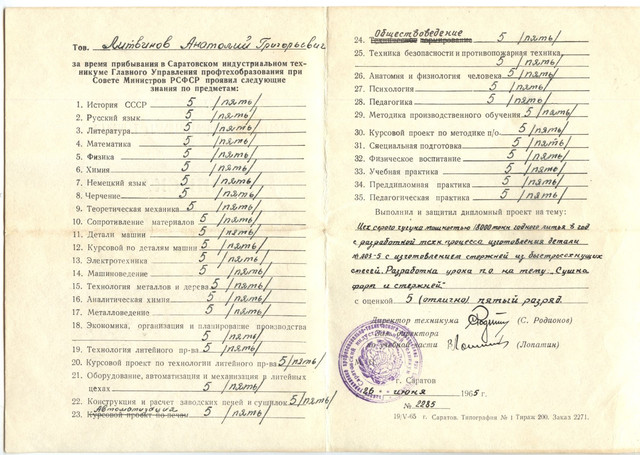 Тов. Литвинов Анатолий Григорьевич
за время прибывания в Саратовском индустриальном тех-
никуме Главного Управления профтехобразования при
Совете Министров РСФСР проявил следующие
знания по предметам:
1. История СССР 5 /пять/
2. Русский язык 5 /пять/
3. Литература 5 /пять/
4. Математика 5 /пять/
5. Физика 5 /пять/
6. Химия 5 /пять/
7. Немецкий язык 5 /пять/
8. Черчение 5 /пять/
9. Теоретическая механика 5 /пять/
10. Сопротивление материалов 5 /пять/
11. Детали машин 5 /пять/
12. Курсовой по деталям машин 5 /пять/
13. Электротехника 5 /пять/
14. Машиноведение 5 /пять/
15. Технология металлов и дерева 5 /пять/
16. Аналитическая химия 5 /пять/
17. Металловедение 5 /пять/
18. Экономика, организация и планирование производства
5 /пять/
19. Технология литейного пр-ва 5 /пять/
20. Курсовой проект по технологии литейного пр-ва 5 /пять/
21. Оборудование, автоматизация и механизация в литейных
цехах 5 /пять/
22. Конструкция и расчет заводских печей и сушилок 5 /пять/
Автоматизация
23. Курсовой проект по печам 5 /пять/
Обществоведение
24. 5 /пять/
25. Техника безопасности и противопожарная техника
5 /пять/
26. Анатомия и физиология человека 5 /пять/
27. Психология 5 /пять/
28. Педагогика 5 /пять/
29. Методика производственного обучения 5 /пять/
30. Курсовой проект по методике п/о 5 /пять/
31. Специальная подготовка 5 /пять/
32. Физическое воспитание 5 /пять/
33. Учебная практика 5 /пять/
34. Преддипломная практика 5 /пять/
35. Педагогическая практика 5 /пять/
Выполнил и защитил дипломный проект на тему:
Цех серого чугуна мощностью 18000 тонн годного литья в год
с разработкой техн. процесса изготовления детали
с изготовлением стержней из быстросохнущих
смесей. Разработка урока п.о на тему „Сушка
форм и стержней"
с оценкой 5 (отлично) пятый разряд.
Директор техникума (С. Родионов)
директора
по учебной части (Лопатин)
г. Саратов
26 июня 1965 г
№ 2285
19/V-65 г. Саратов. Типография № 1 Тираж 200. Заказ 2271.